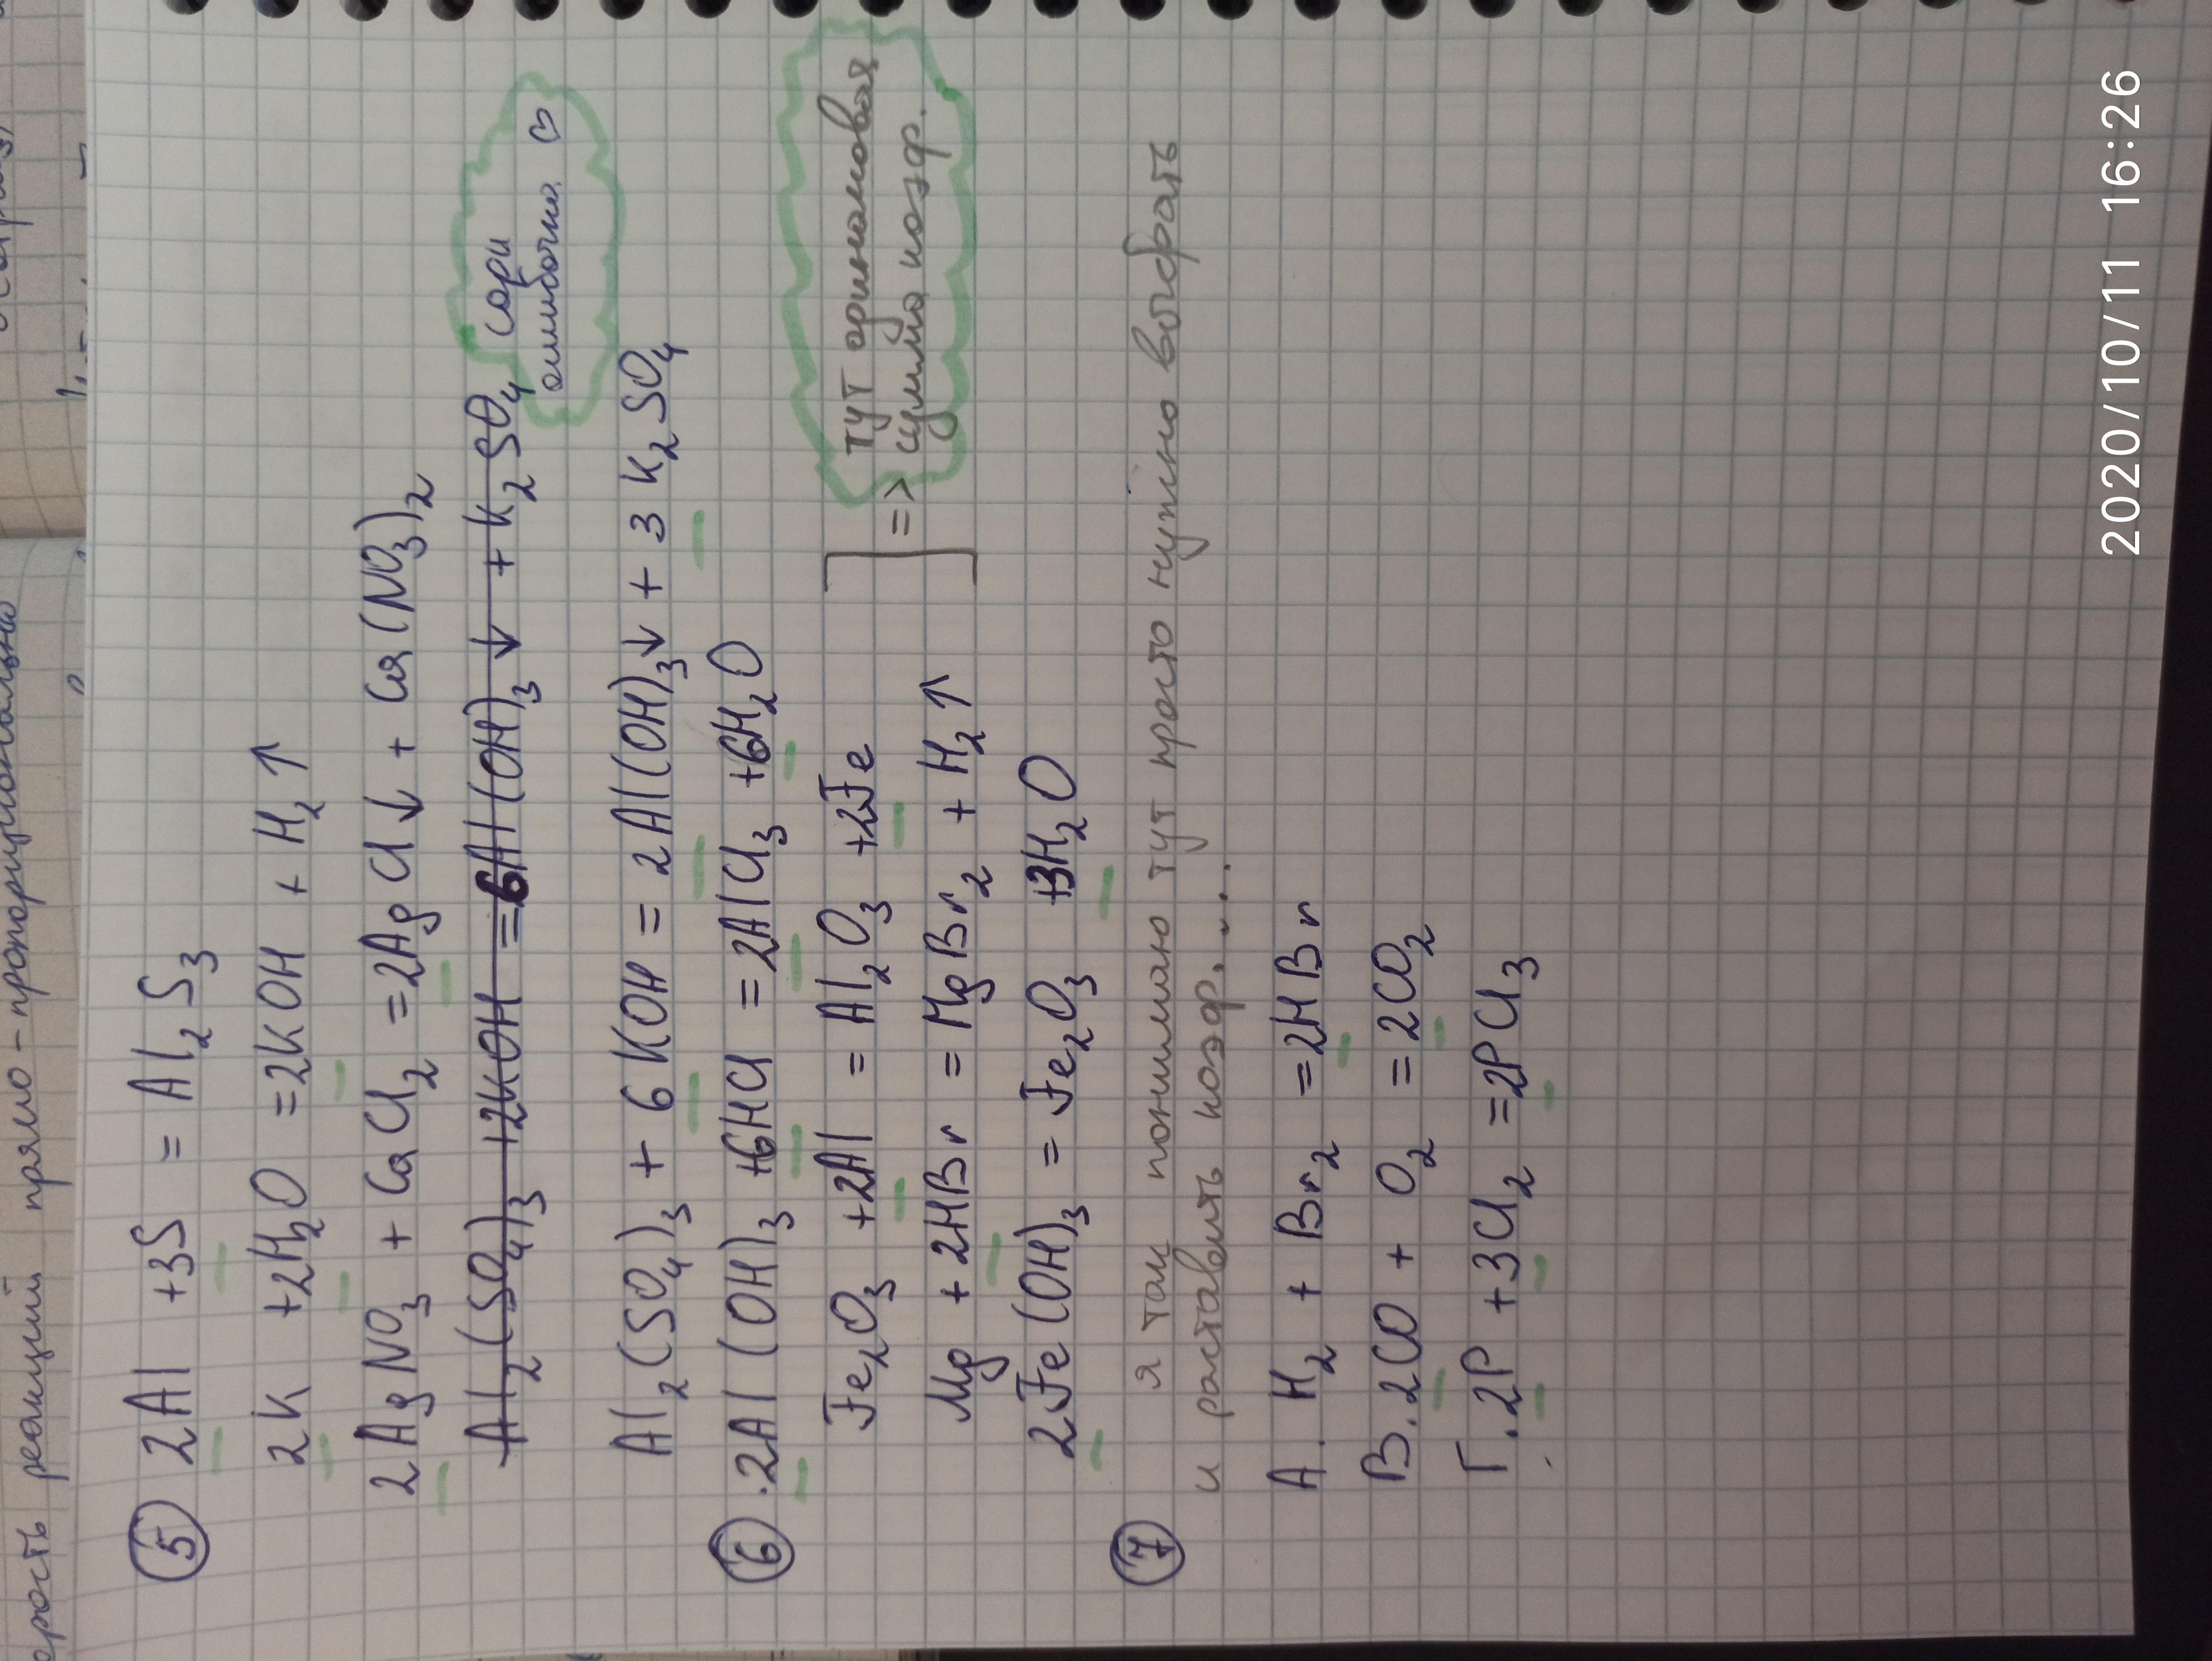 орость реакции прямо-пропорционально
5 2Al +3S = Al₂S₃
2K +2H₂O =2KOH + H₂↑
2AgNO₃ + CaCl₂ =2AgCl↓ + Ca(NO₃)₂
Al₂(SO₄)₃ +2KOH =6Al(OH)₃↓ + K₂SO₄
сори
ошибочка ♡
Al₂(SO₄)₃ + 6KOH = 2Al(OH)₃↓ + 3K₂SO₄
6 .2Al(OH)₃ +6HCl =2AlCl₃ +6H₂O
Fe₂O₃ +2Al = Al₂O₃ +2Fe
Mg +2HBr = MgBr₂ + H₂↑
] => тут одинаковая
сумма коэф.
2Fe(OH)₃ = Fe₂O₃ +3H₂O
7 я так понимаю тут просто нужно выбрать
и расставить коэф....
А. H₂ + Br₂ =2HBr
В.2CO + O₂ =2CO₂
Г.2P +3Cl₂ =2PCl₃
2020/10/11 16:26